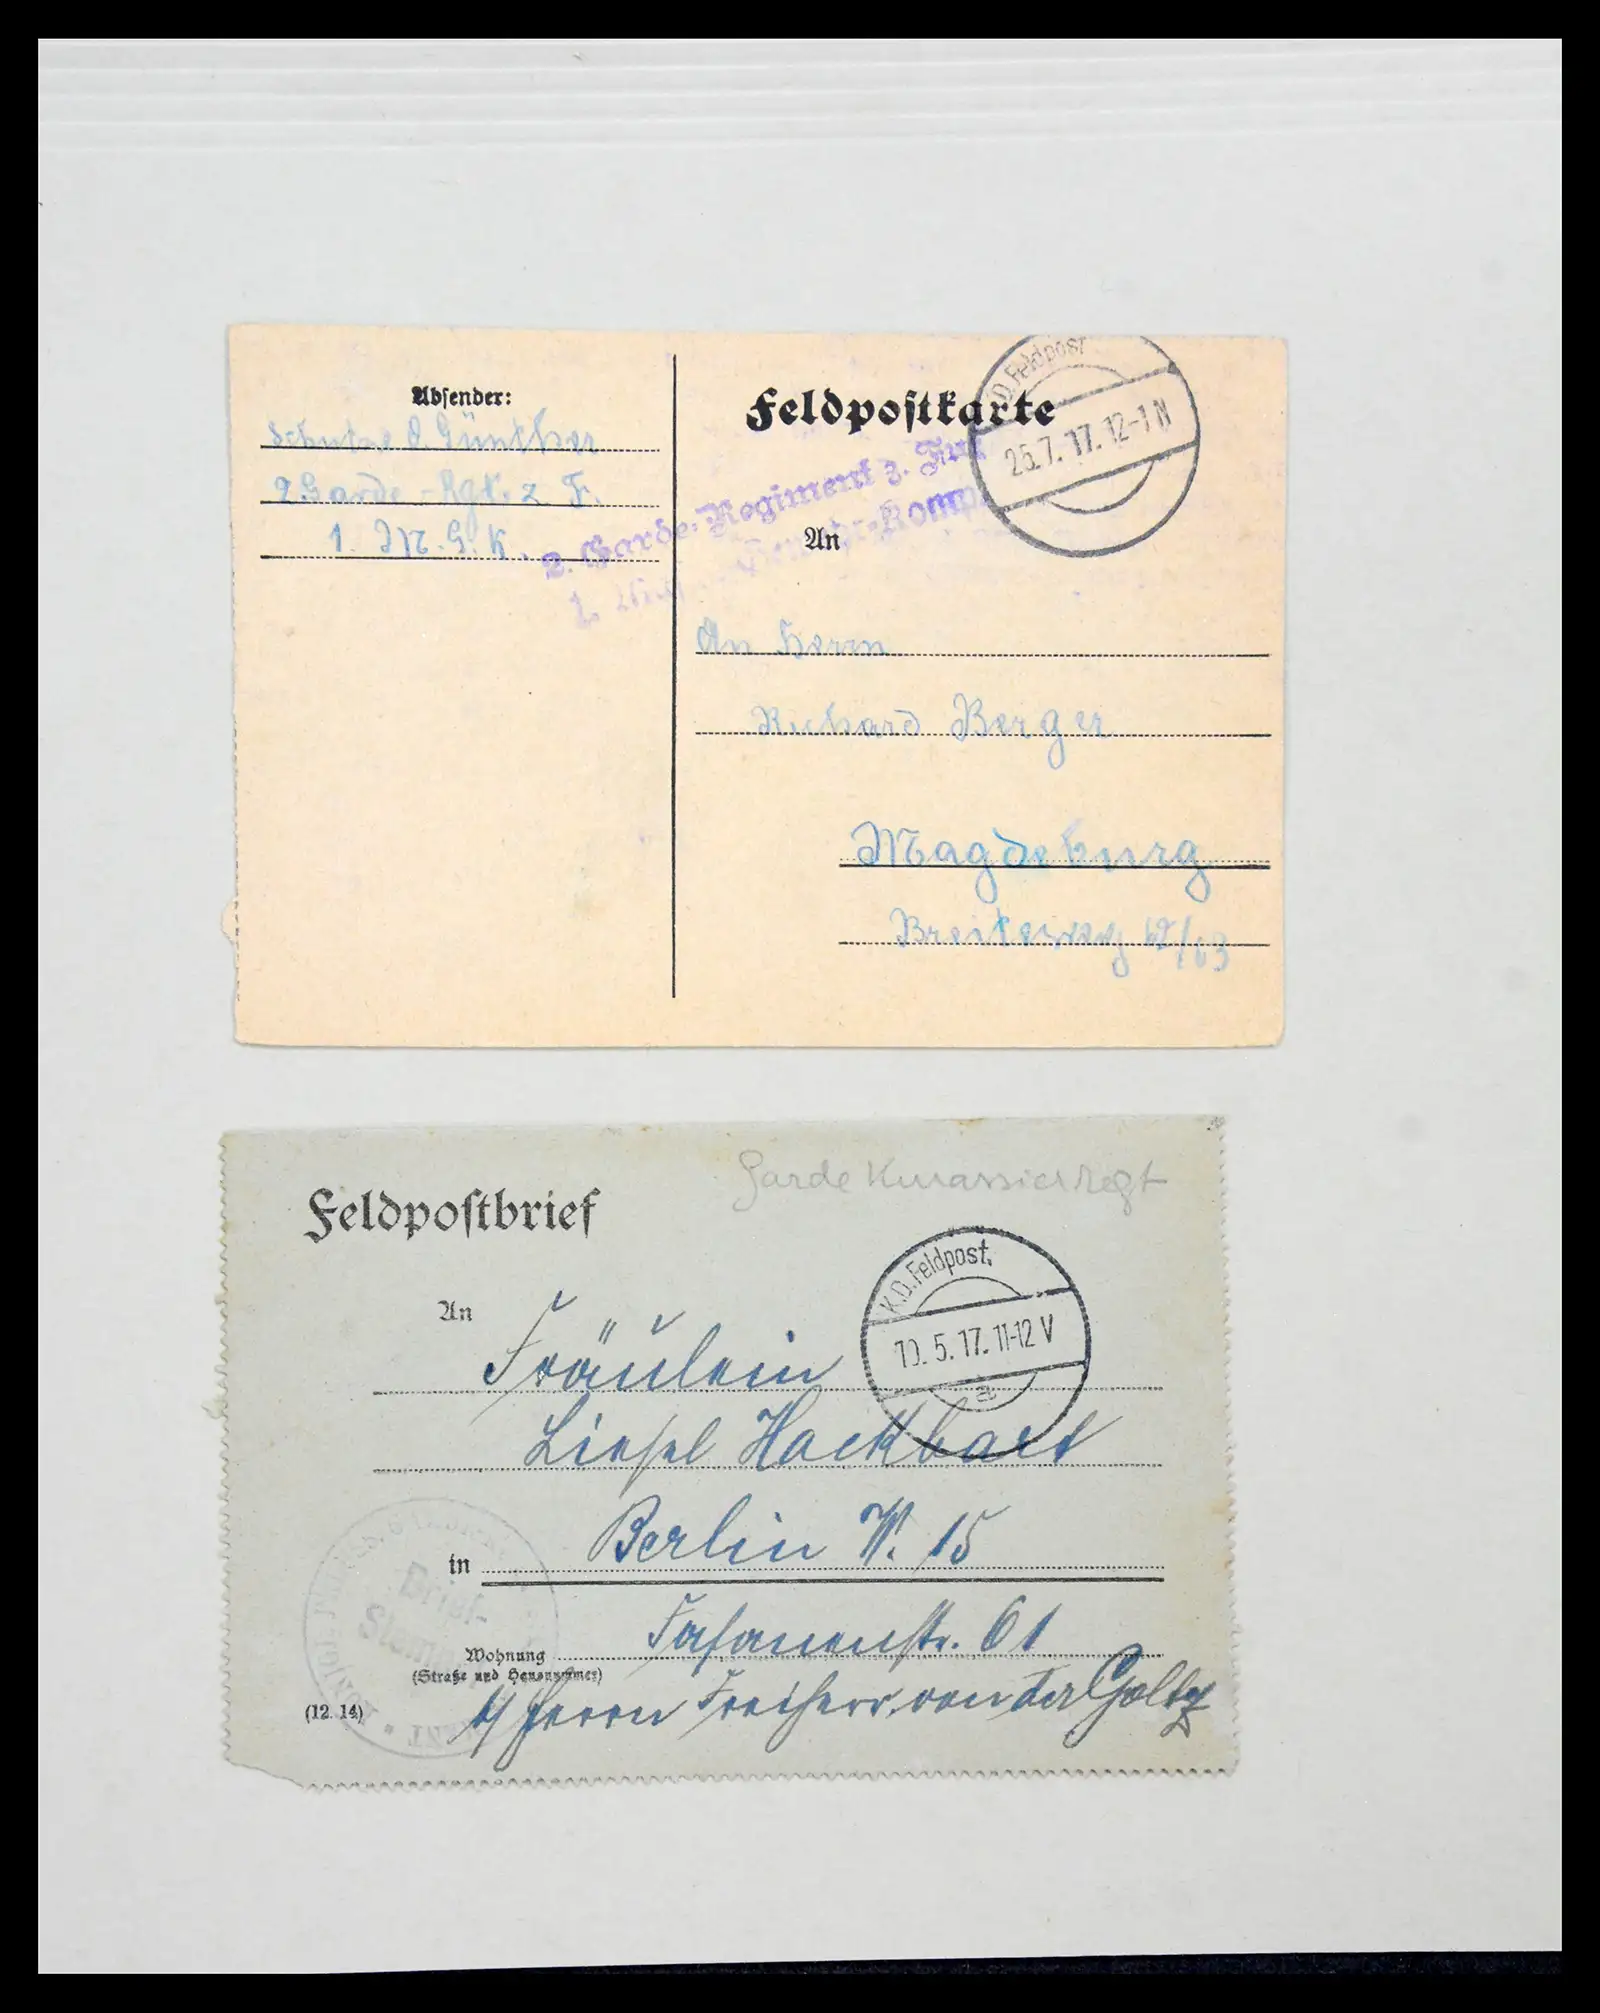 Absender:
Schütze O. Günther
2 Garde-Rgt. z. F.
1. M. G. K.
Feldpostkarte
K.D. Feldpost
25.7.17. 12-1 N
2. Garde-Regiment z. Fuß
1.
An
An Herrn
Richard Berger
Magdeburg
Breiteweg
Garde Kürassier Regt
Feldpostbrief
K.D. Feldpost.
10.5.17. 11-12 V
a
An
Fräulein
Liesel Hackbart
in Berlin W. 15
Brief-
Stempel
Wohnung Fasanenstr. 61
(Straße und Hausnummer)
b/ Herrn Freiherr von der Goltz
(12. 14)